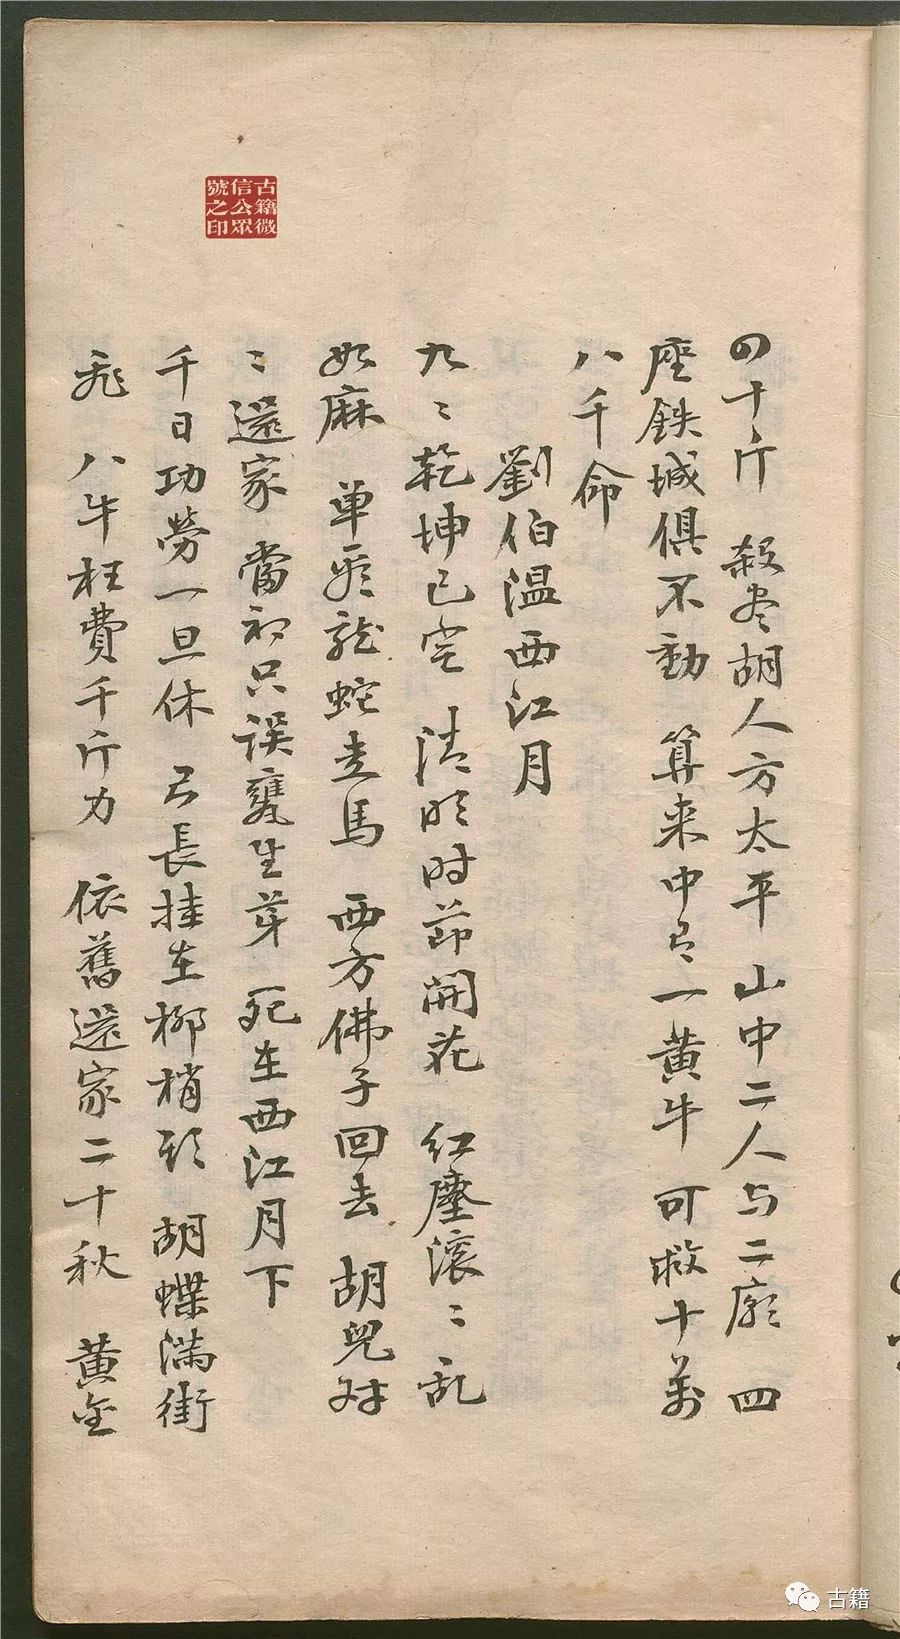 四十斤　殺尽胡人方太平　山中二人与二廟　四
座鉄城俱不動　算来中有一黄牛　可救十萬
八千命
劉伯温西江月
九〻乾坤已定　清明时莭開花　红塵滚〻乱
如麻　单尽龍蛇走馬　西方佛子回去　胡兒对
〻還家　當初只誤甕生芽　死在西江月下
千日功勞一旦休　弓長挂在柳梢头　胡蝶满街
飛　八牛枉費千斤力　依舊還家二十秋　黄金
古籍微
信公眾
號之印
古籍